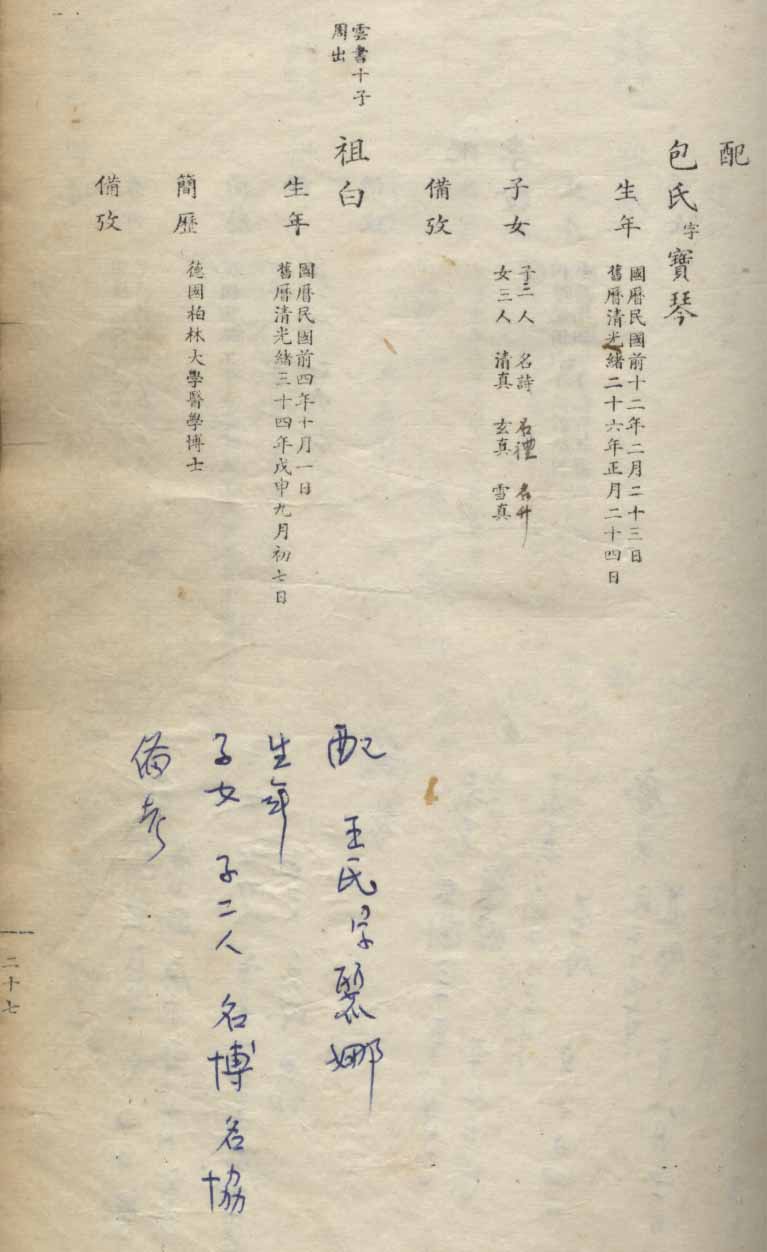 配
包氏字寶琴
生年
國曆民國前十二年二月二十三日
舊曆清光緒二十六年正月二十四日
子女
子三人 名詩 名禮 名升
女三人 清真 玄真 雪真
備攷
雲書十子
周出
祖白
生年
國曆民國前四年十月一日
舊曆清光緒三十四年戊申九月初七日
簡歷
德國柏林大學醫學博士
備攷
配 王氏字 娜
生年
子女 子二人 名博 名協
備考
二十七